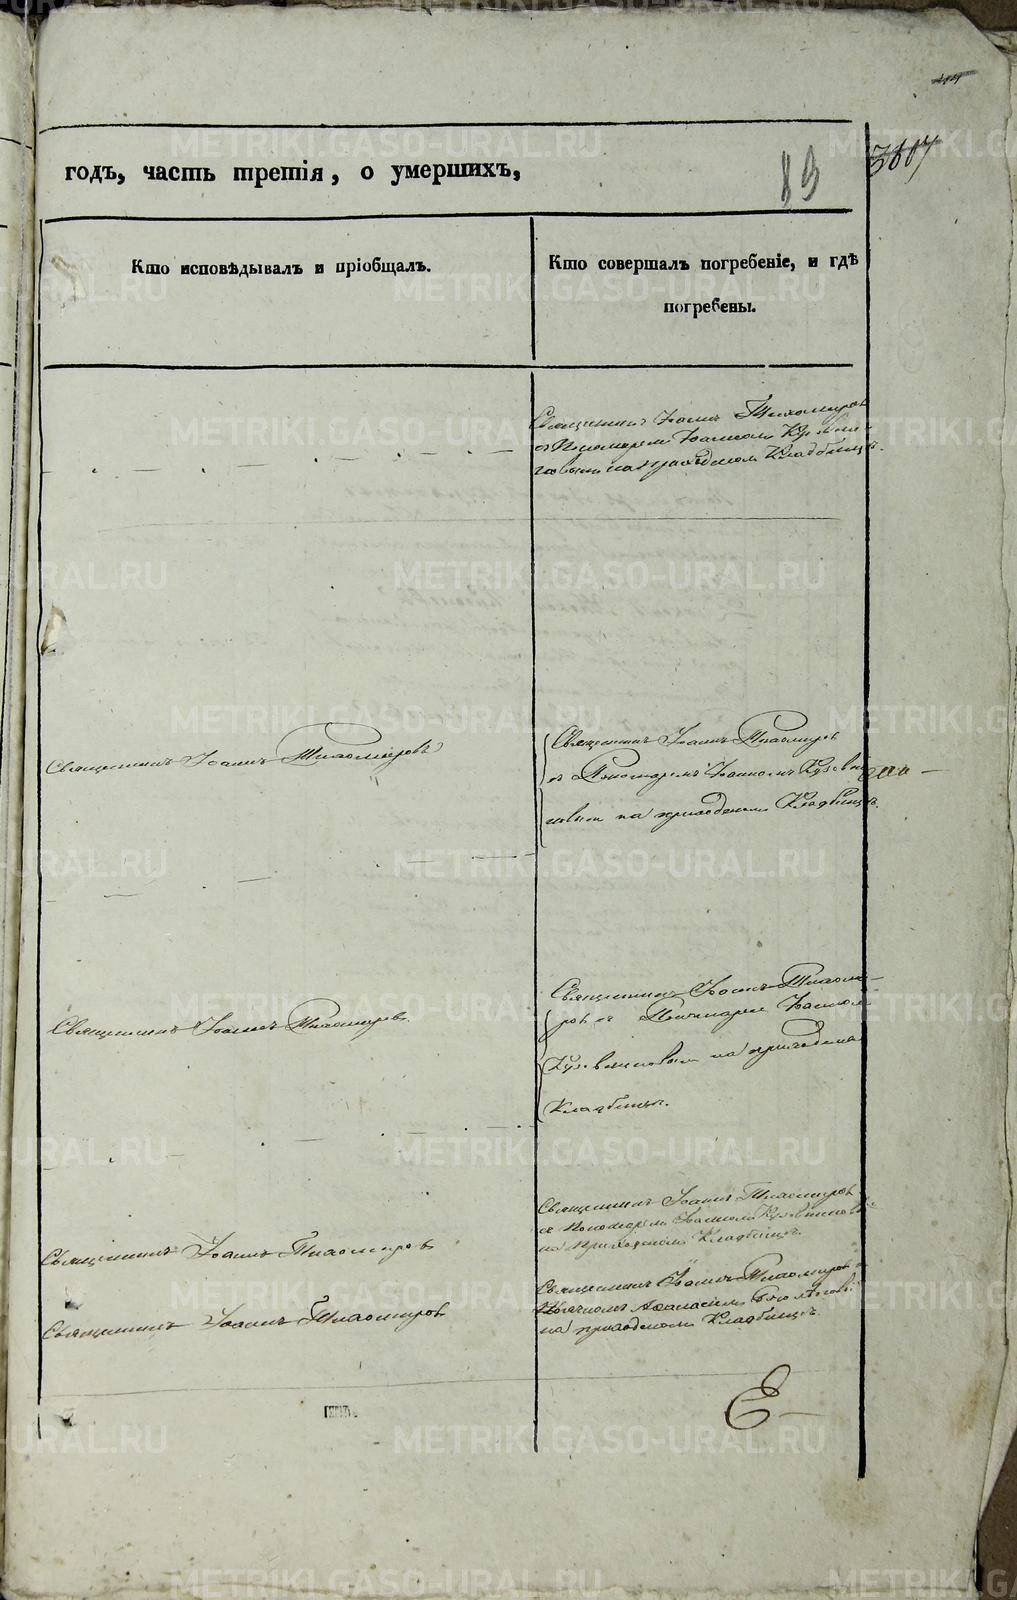 3607
годъ, часть третія, о умершихъ,
89
Кто исповѣдывалъ и пріобщалъ.
Кто совершалъ погребеніе, и гдѣ
погребены.
Священникъ Іоаннъ Тихомировъ
съ Пономаремъ Іоанномъ
на приходскомъ Кладбищѣ.
Священникъ Іоаннъ Тихомировъ
Священникъ Іоаннъ Тихомировъ
съ Пономаремъ Іоанномъ
на приходскомъ Кладбищѣ.
Священникъ Іоаннъ Тихомировъ.
Священникъ Іоаннъ Тихоми-
ровъ съ Пономаремъ Іоанномъ
на приходскомъ
Кладбищѣ.
Священникъ Іоаннъ Тихомировъ
Священникъ Іоаннъ Тихомировъ
съ Пономаремъ Іоанномъ
на приходскомъ Кладбищѣ.
Священникъ Іоаннъ Тихомировъ
Священникъ Іоаннъ Тихомировъ
Аѳанасіемъ
на приходскомъ Кладбищѣ.
METRIKI.GASO-URAL.RU